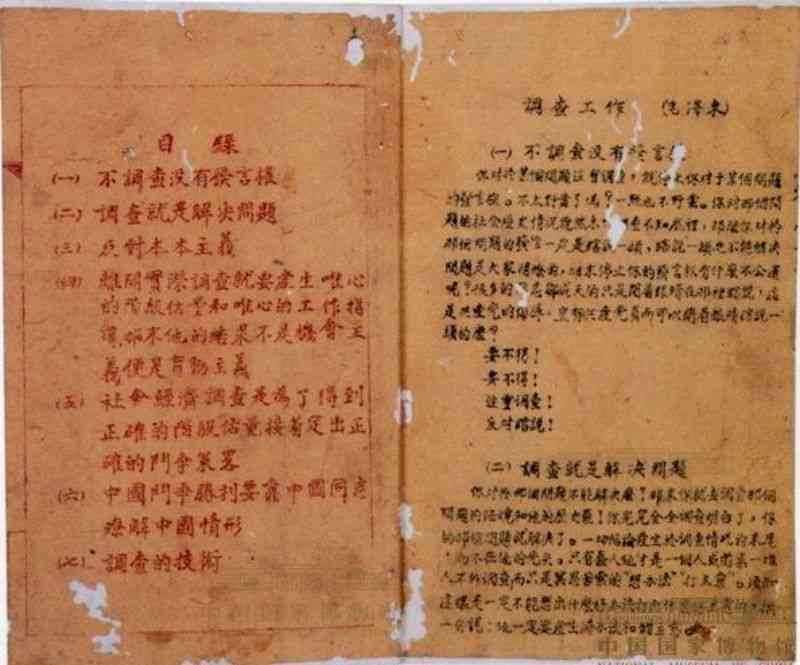 目錄
(一) 不調查没有發言權
(二) 調查就是解决問題
(三) 反對本本主義
(四) 離開實際調查就要產生唯心
的階級估量和唯心的工作指
導，那末他的結果不是機會主
義便是盲動主義
(五) 社会經濟調查是為了得到
正確的階級估量接着定出正
確的鬥争策畧
(六) 中國鬥争勝利要靠中國同志
瞭解中國情形
(七) 調查的技術
調查工作 (毛澤東)
(一) 不調查没有發言
你对於某個問題没有調查，就停止你对于某個問題
的發言權。不太野蠻了嗎？一點也不野蠻。你对那個問
題的
那個問題的發言一定是瞎說一頓，瞎說一頓之不能解决
問題是大家明瞭的，那末停止你的發言权有什麼不公道
呢？許多的同志都成天的只是閉着眼睛在那裡瞎說，這
是共產党的恥辱，豈有共產党員而可以閉着眼睛瞎說一
頓的麼？
要不得！
要不得！
注重調查！
反对瞎說！
(二) 調查就是解决問題
你对於那個問題不能解决麼？那末你就去調查那個
問題的現状和他的歷史罷！你完完全全調查明白了，你
对那個問題就解决了。一切結論產生於調查情况的末尾
，而不在他的先头。只有蠢人他才是一個人或邀集一堆
人不作調查而只是冥思苦索的“想办法”打主意”。須知
這樣是一定不能想出什麼好办法打出什麼好主意的，換
一句說：他一定要產生錯办法和錯主意
中国国家博物馆